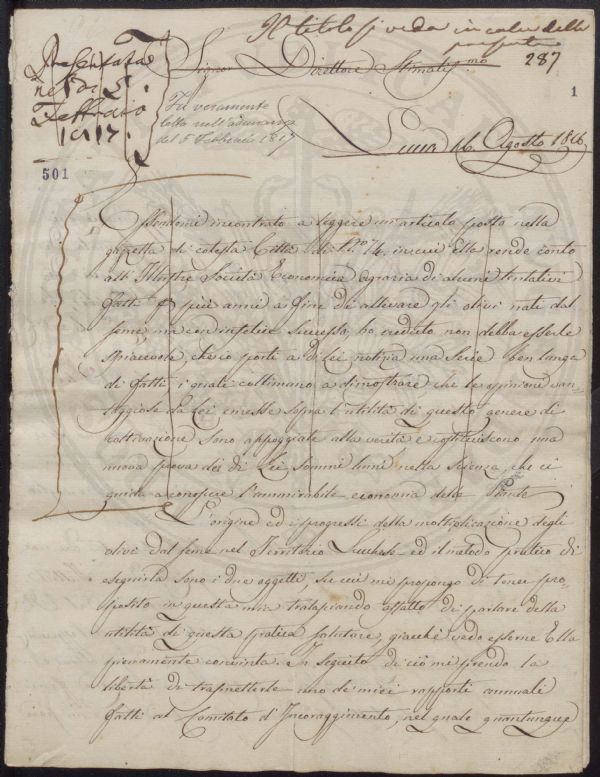 Il titolo si veda in calce della
presente
287
1
Presentata
nel dì 5.
Febbraio
1817.
Signor Direttore Stimatis.mo
Fu veramente
letta nell'adunanza
del 5 Febbraio 1817
Lucca 16 Agosto 1816
501
Essendomi incontrato a leggere un articolo posto nella
gazzetta di cotesta Città di N.ro 74 in cui Ella rende conto
all'Illustre Società Economica Agraria di alcuni tentativi
fatti più anni a fine di allevare gli olivi nati dal
seme, ma con infelice successo, ho creduto non debba esserle
spiacevole, che io porti a di Lei notizia una serie ben lunga
di fatti i quali collimano a dimostrare che le opinioni van-
taggiose da Lei emesse sopra l'utilità di questo genere di
coltivazione sono appoggiate alla verità e costituiscono una
nuova prova dei di Lei sommi lumi nella scienza, che ci
guida a conoscere l'ammirabile economia delle Piante
L'origine ed i progressi della moltiplicazione degli
olivi dal seme nel Territorio Lucchese ed il metodo pratico di
eseguirla sono i due oggetti su cui mi propongo di tener pro-
posito in questa mia tralasciando affatto di parlare della
utilità di questa pratica salutare, giacchè vedo esserne Ella
pienamente convinta. In seguito di ciò mi prendo la
libertà di trasmetterle uno de' miei rapporti annuali
fatti al Comitato d'Incoraggimento, nel quale quantunque